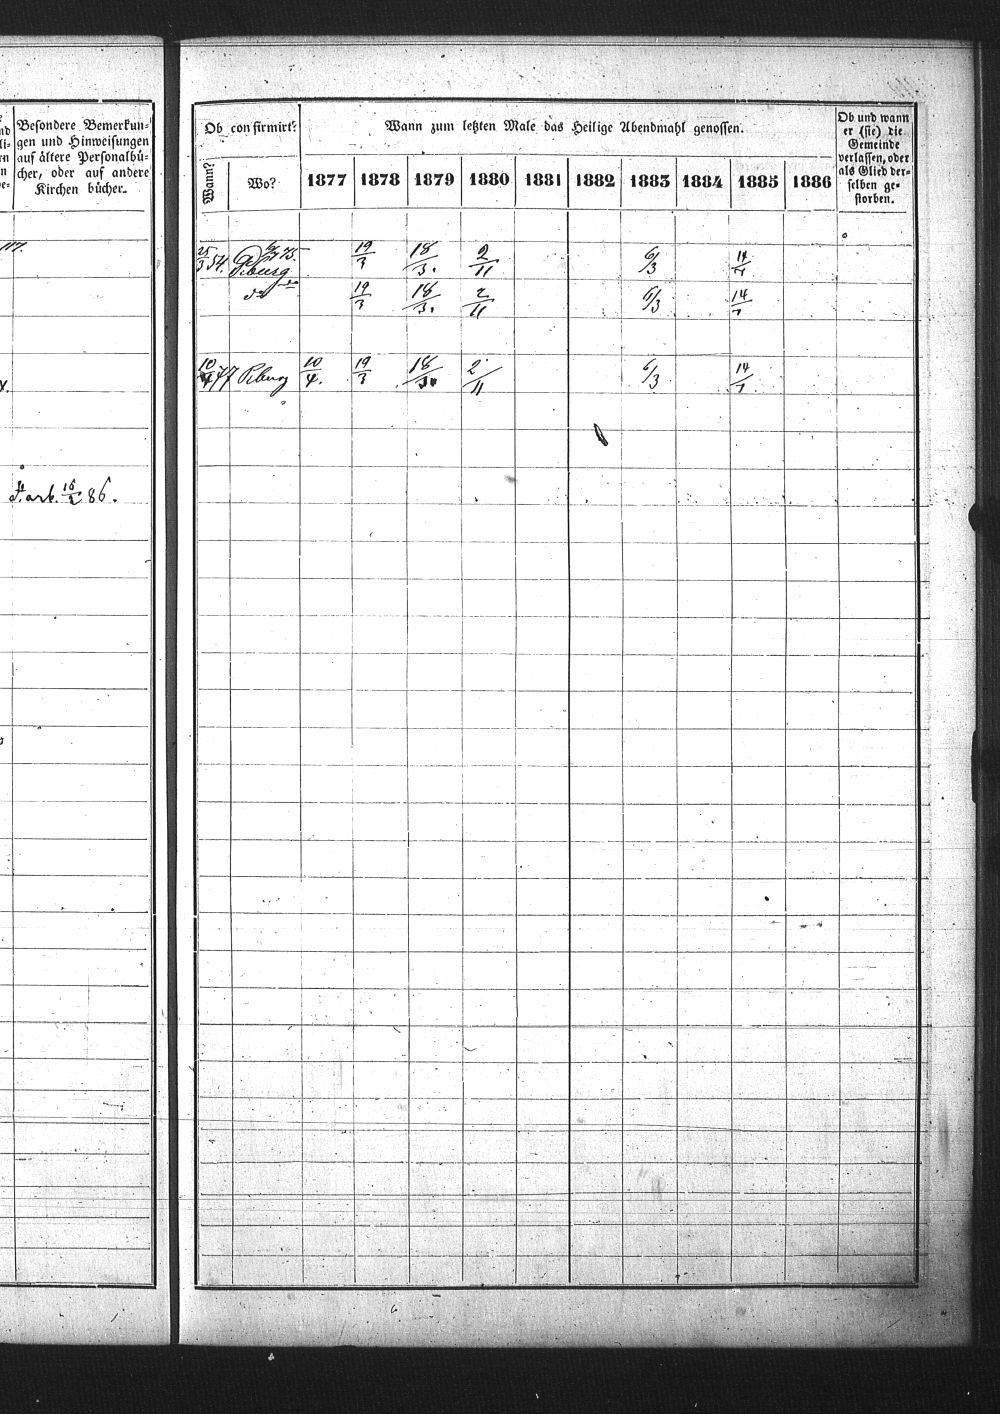 Besondere Bemerkun-
gen und Hinweisungen
auf ältere Personalbü-
cher, oder auf andere
Kirchen bücher.
ark. 16/2 86.
Ob confirmirt?
Wann?
Wo?
Wann zum letzten Male das Heilige Abendmahl genossen.
1877 1878 1879 1880 1881 1882 1883 1884 1885 1886
Ob und wann
er (sie) die
Gemeinde
verlassen, oder
als Glied der-
selben ge-
storben.
25/3 54. Pburg 19/3 18/3. 2/11 6/3 14/7
do 19/3 18/3. 2/11 6/3 14/7
10/4 77 Pburg 10/4. 19/3 18/3. 2/11 6/3 14/7